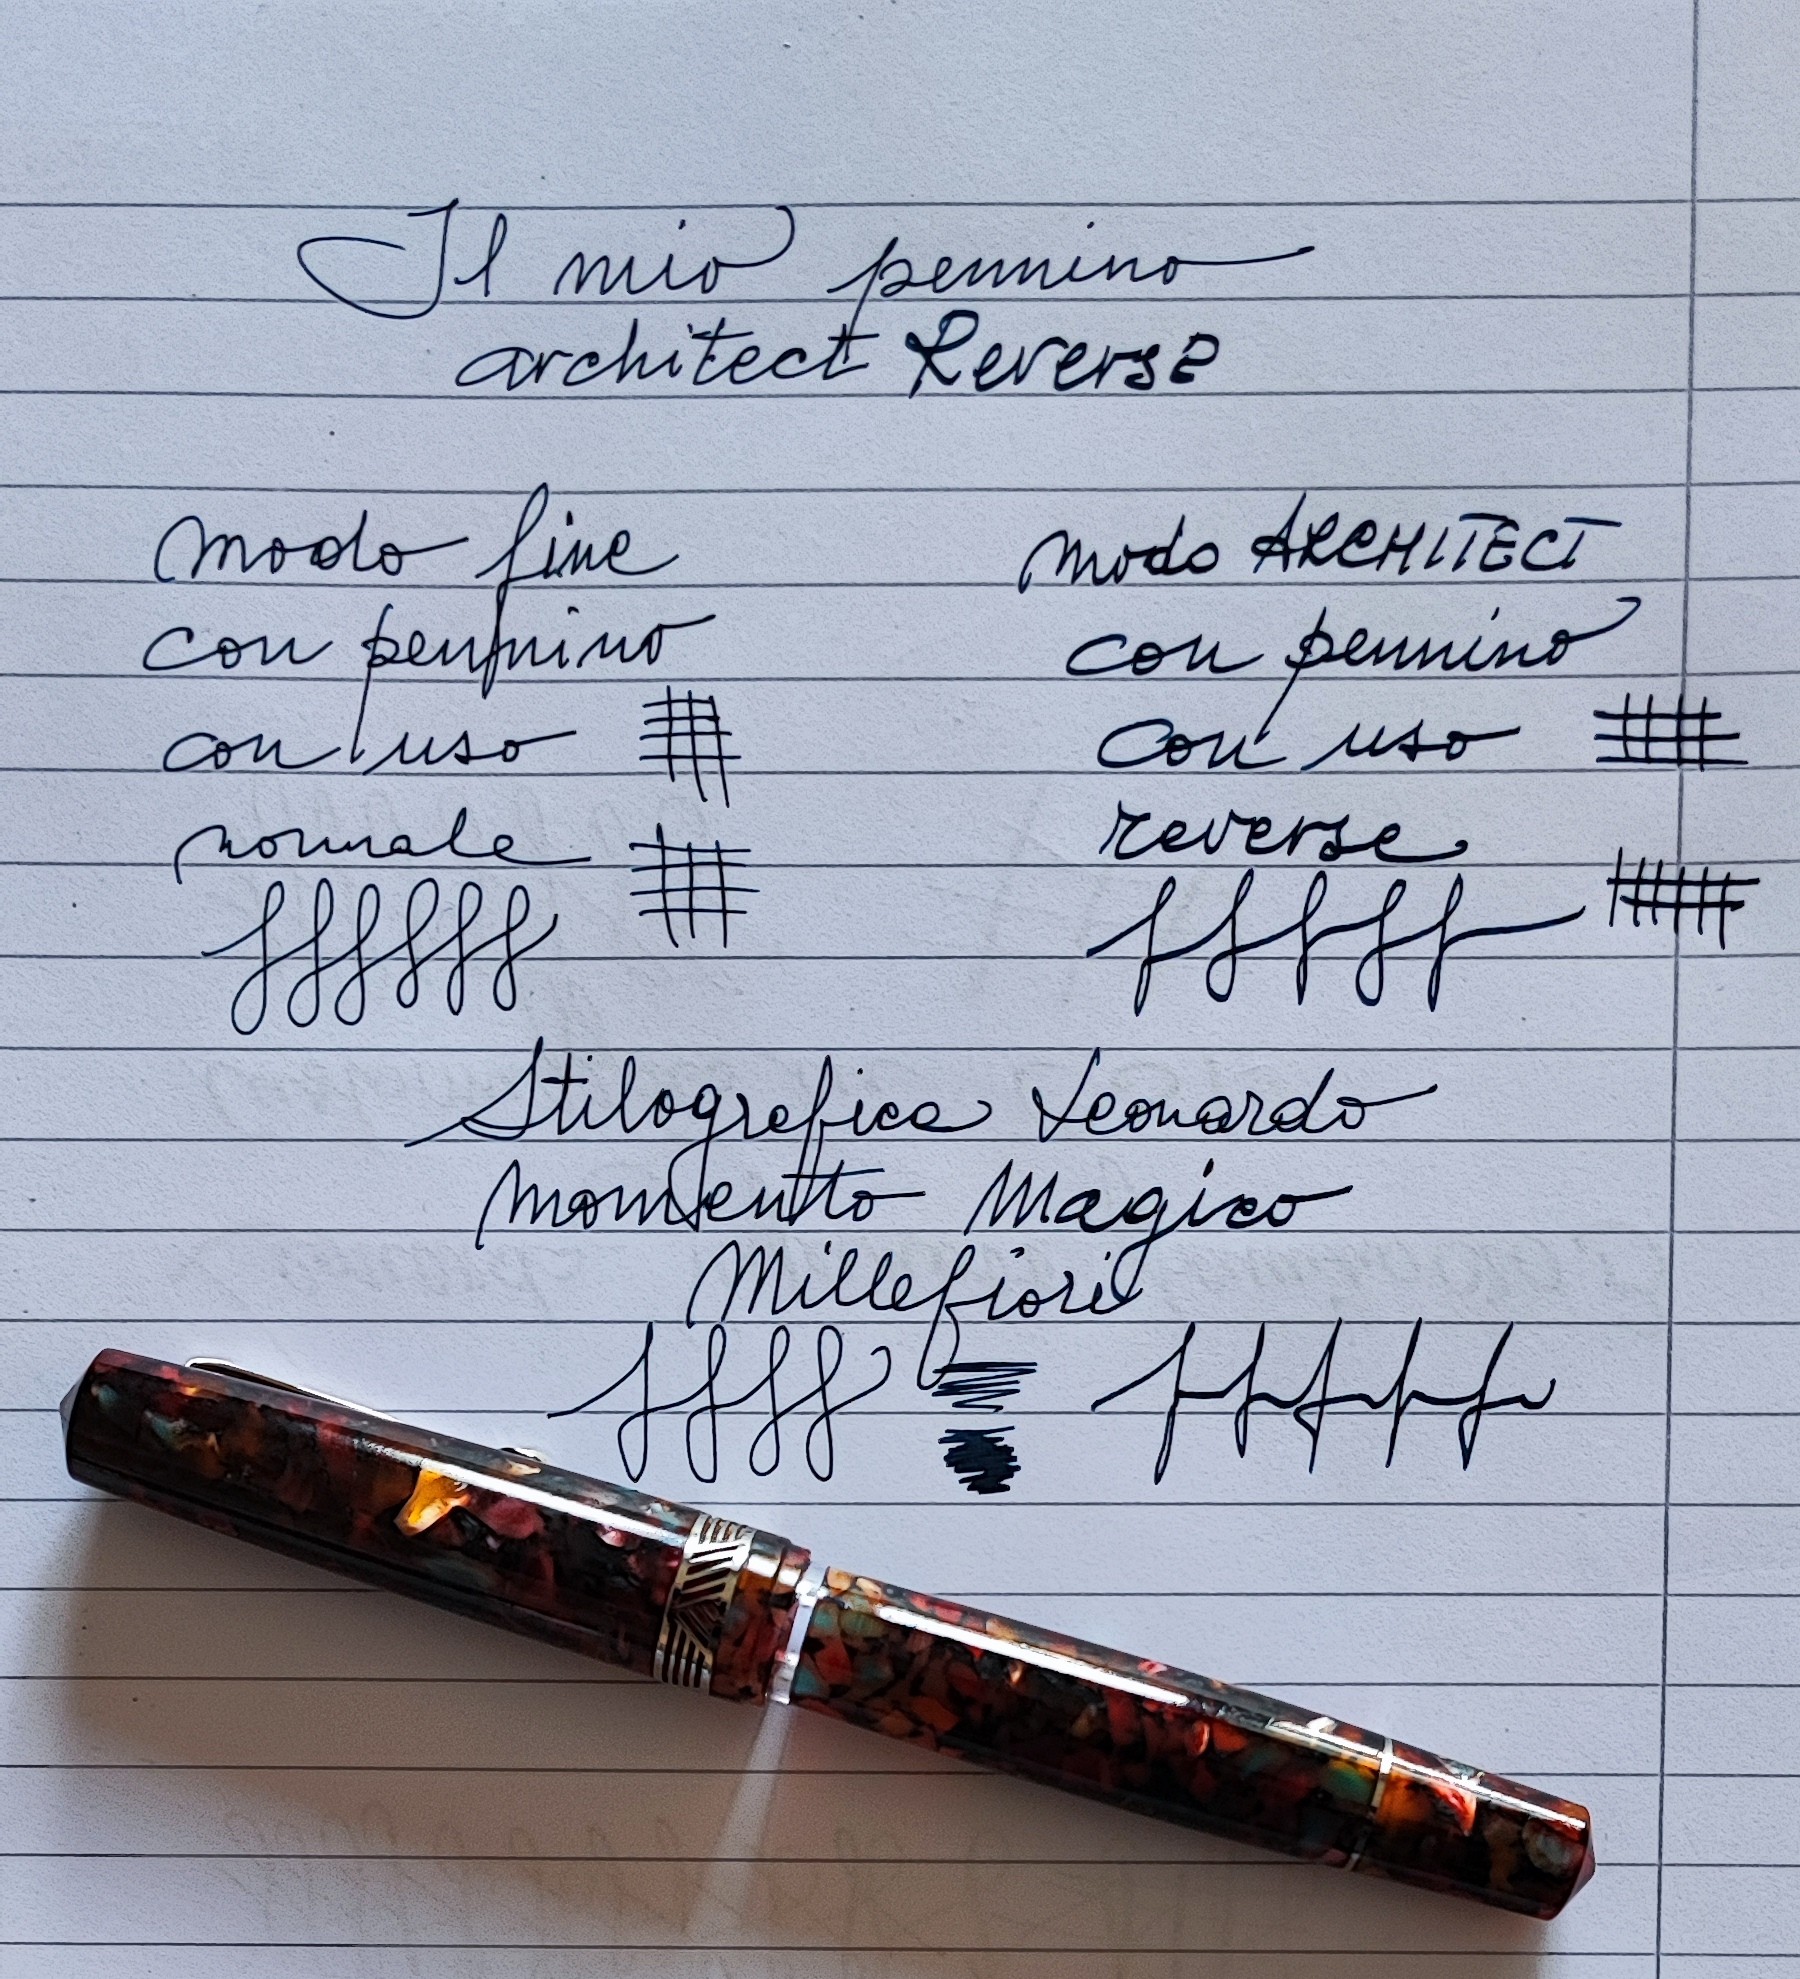 Il mio pennino
architect Reverse
modo fine
con pennino
con uso
normale
modo ARCHITECT
con pennino
con uso
reverse
Stilografica Leonardo
momento Magico
Millefiori